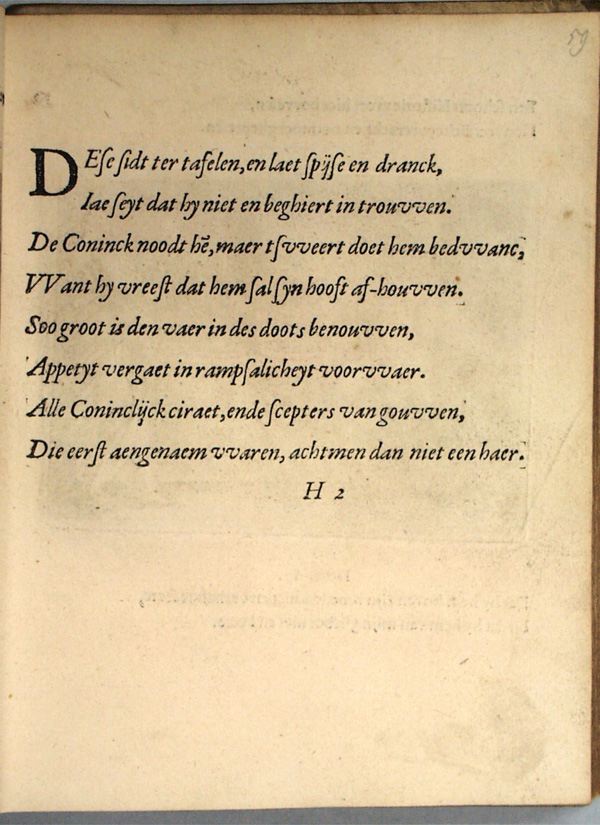 59
DEſe ſidt ter tafelen, en laet ſpijſe en dranck,
Iae ſeyt dat hy niet en beghiert in trouvven.
De Coninck noodt hē, maer tſvveert doet hem bedvvanc,
VVant hy vreeſt dat hem ſal ſyn hooft af-houvven.
Soo groot is den vaer in des doots benouvven,
Appetyt vergaet in rampſalicheyt voorvvaer.
Alle Coninclijck ciraet, ende ſcepters van gouvven,
Die eerſt aengenaem vvaren, achtmen dan niet een haer.
H 2